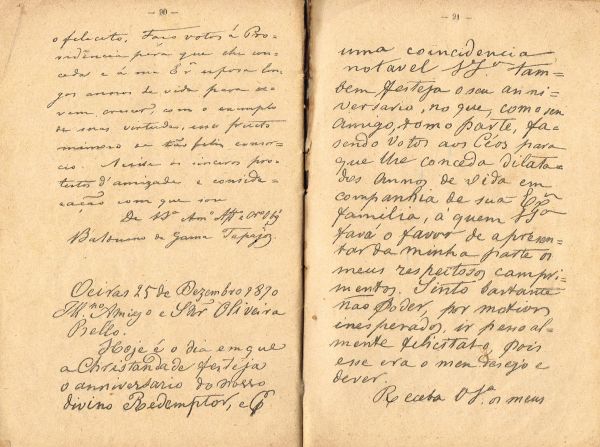 — 20 —
o felicito, Faço votos á Pro=
videncia pera que lhe con=
ceda e á ma Exª esposa lon=
gos annos de vida para
verem crescer, com o exemplo
de suas virtudes, esse fructo
mimoso de tão feliz consor=
cio. Aceite os sinceros pro=
testos d'amizade e conside=
ração com que sou
De Vª Amº Affº e Crº Obgº
Balduino da Gama Tupajós.
Oeiras 25 de Dezembro 1870
Illmº Amigo e Sñr Oliveira
Bello.
Hoje é o dia em que
a Christandade festeja
o anniversario do nosso
divino Redemptor, e (p
— 21 —
uma coincidencia
notavel Vª Sª tam=
bem festeja o seu anni=
versario, no que, como seu
Amigo, tomo parte, fa=
sendo votos aos Ceos para
que lhe conceda dilata=
dos Annos de vida em
companhia de sua Exmª
familia, a quem VSª
fará o favor de apresen=
tar da minha parte os
meus respeitosos cumpri=
mentos. Sinto bastante
não poder, por motivos
inesperados, ir pessoal=
mente felicital-o, pois
esse era o meu desejo e
dever.
Receba VSª os meus